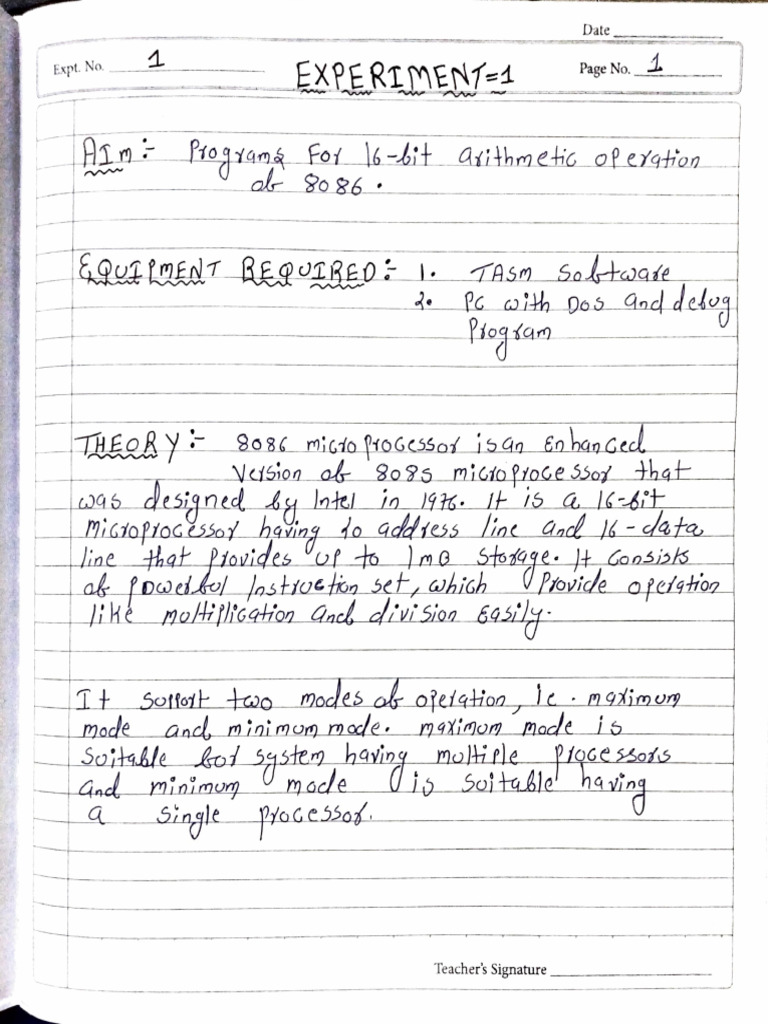 Date
Expt. No. 1
EXPERIMENT=1
Page No. 1
AIm:- Programs For 16-bit arithmetic operation
of 8086.
EQUIPMENT REQUIRED:- 1. TASM Software
2. PC with Dos and debug
Program
THEORY:- 8086 microprocessor is an Enhanced
Version of 8085 microprocessor that
was designed by Intel in 1976. It is a 16-bit
Microprocessor having 20 address line and 16-data
line that provides up to 1MB storage. It consists
of powerful Instruction set, which Provide operation
like multiplication and division Easily.
It support two modes of operation, ie. maximum
mode and minimum mode. Maximum mode is
Suitable for system having multiple processors
and minimum mode is suitable having
a single processor.
Teacher's Signature